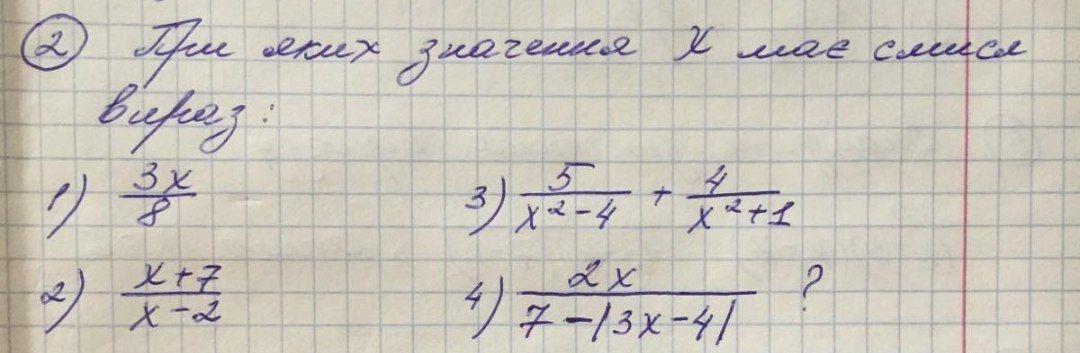 2 При яких значення x має смисл
вираз:
1) 3x/8 3) 5/(x²-4) + 4/(x²+1)
2) (x+7)/(x-2) 4) 2x/(7-|3x-4|) ?